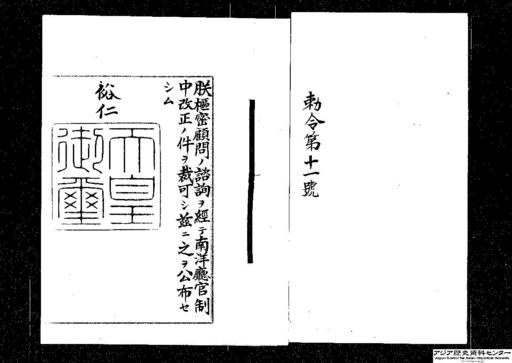 勅令第十一號
朕樞密顧問ノ諮詢ヲ經テ南洋廳官制
中改正ノ件ヲ裁可シ茲ニ之ヲ公布セ
シム
裕仁
天皇
御璽
アジア歴史資料センター
Japan Center for Asian Historical Records